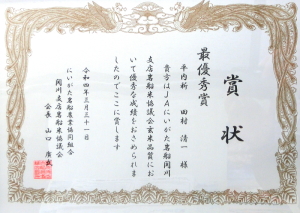 賞状
最優秀賞
平内新 田村清一様
貴方はJAにいがた岩船関川
支店岩船米協議会玄米品質にお
いて優秀な成績をおさめられま
したのでここに賞します
令和四年三月三十一日
にいがた岩船農業協同組合
関川支店岩船米協議会
会長 山口